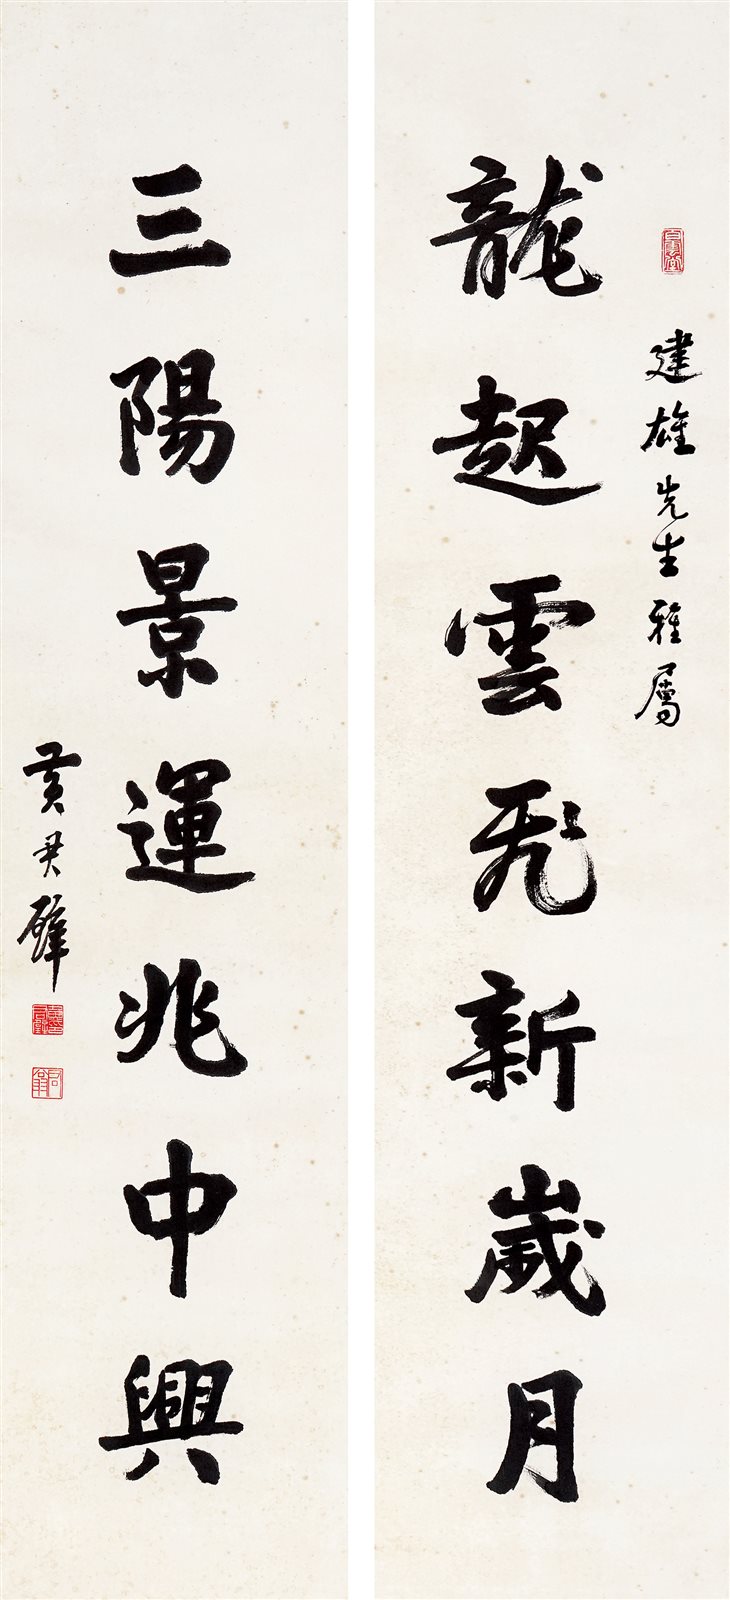 建雄先生雅屬
龍起雲飛新歲月
三陽景運兆中興
黃君璧